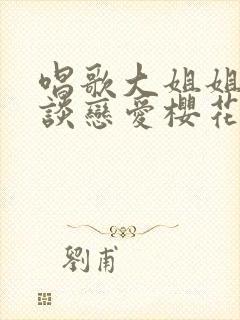 唱歌大姐姐
談戀愛櫻花
劉甫